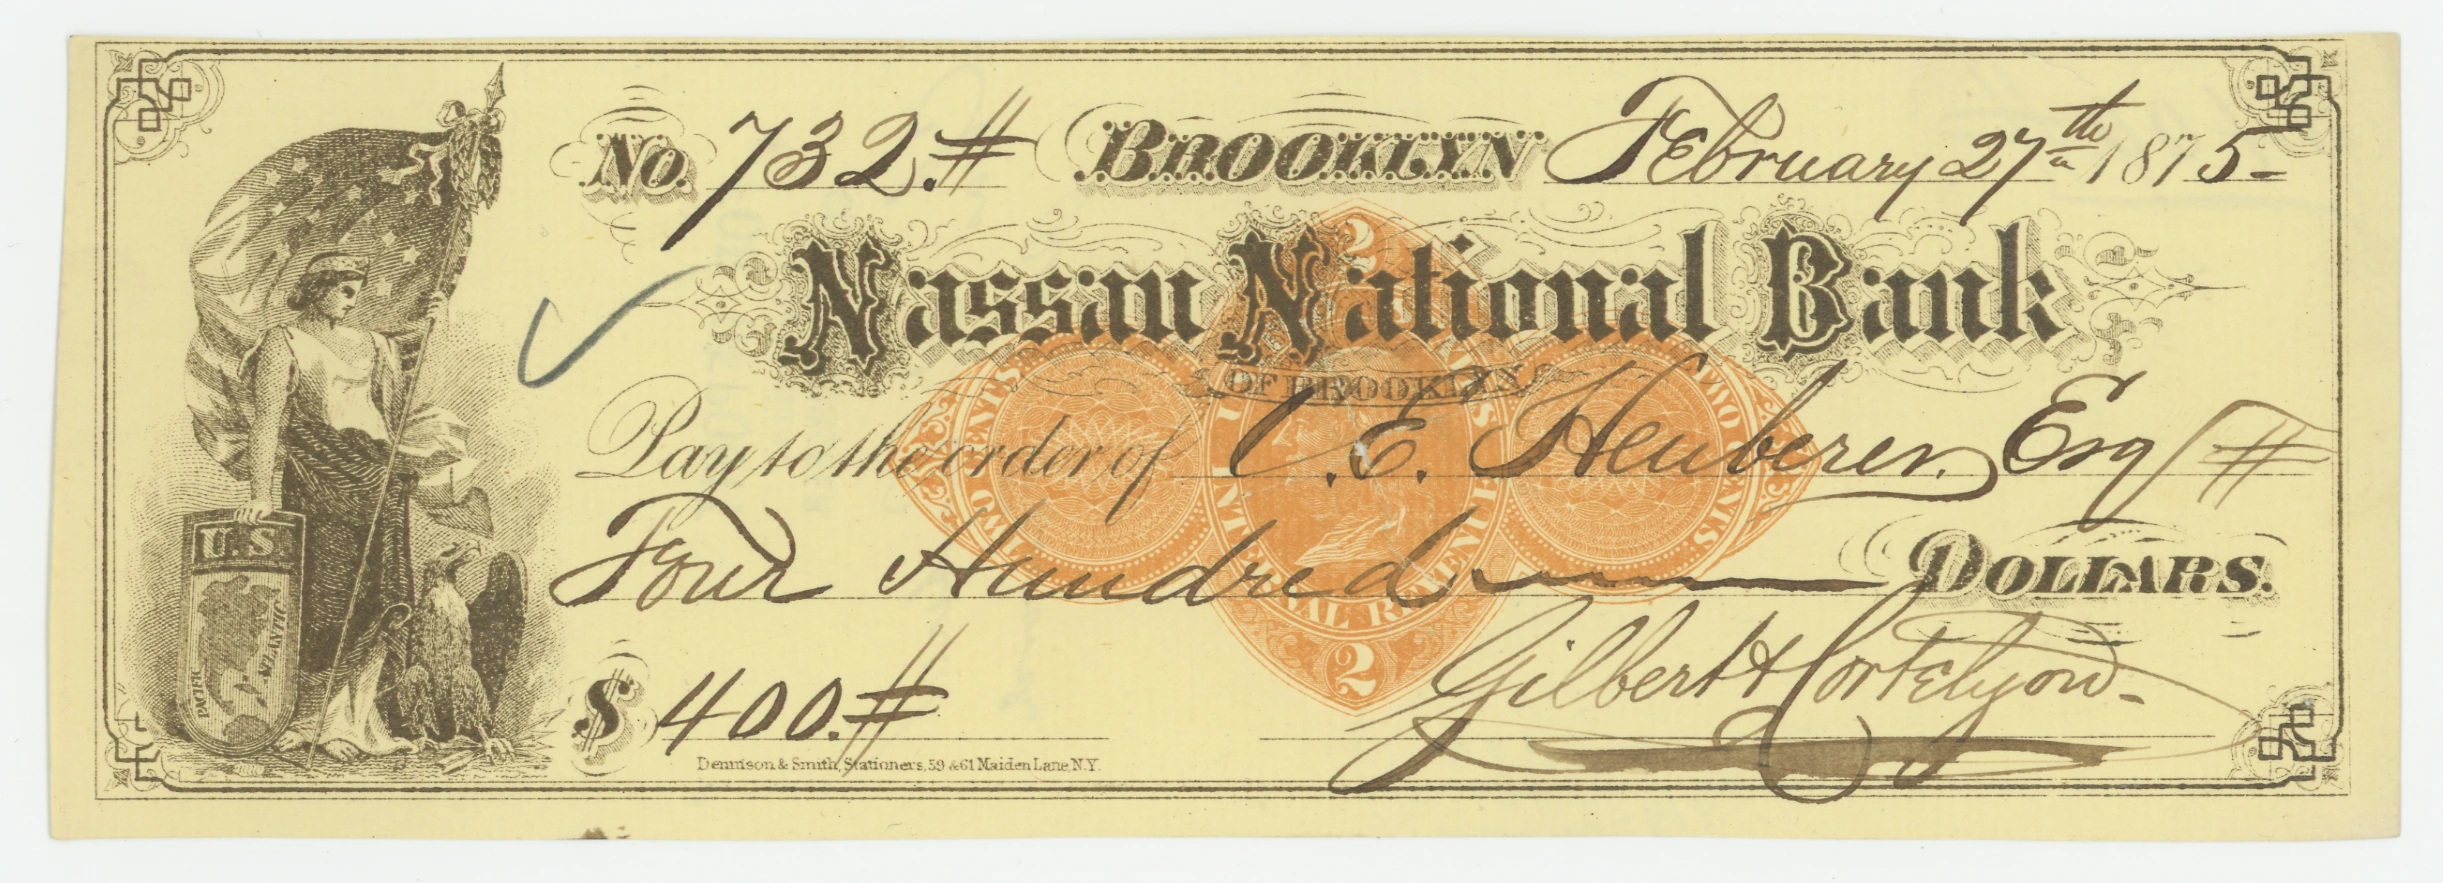 No. 732.# BROOKLYN February 27th 1875
Nassau National Bank
OF BROOKLYN
Pay to the order of C. E. Heuberer. Esq #
Four Hundred DOLLARS.
$ 400.#
Gilbert H Cortelyou
Dennison & Smith, Stationers, 59 & 61 Maiden Lane N.Y.
U.S.
PACIFIC
ATLANTIC
2
TWO CENTS
TWO CENTS
U.S. INTERNAL REVENUE
2